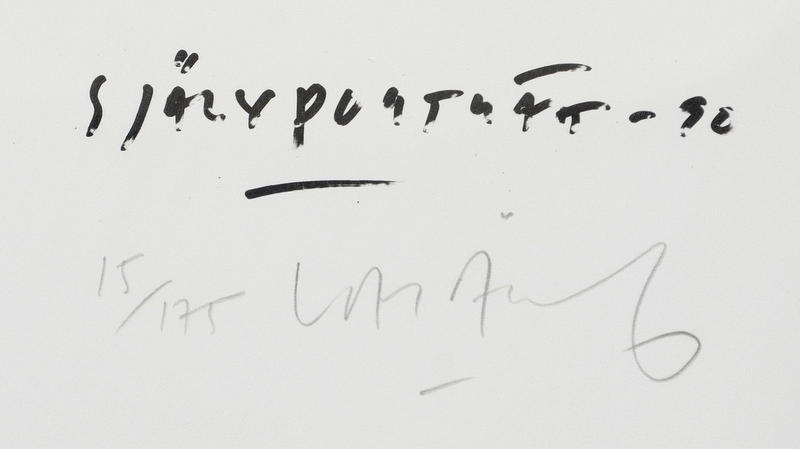 SJÄLVPORTRÄTT - 90
15/175